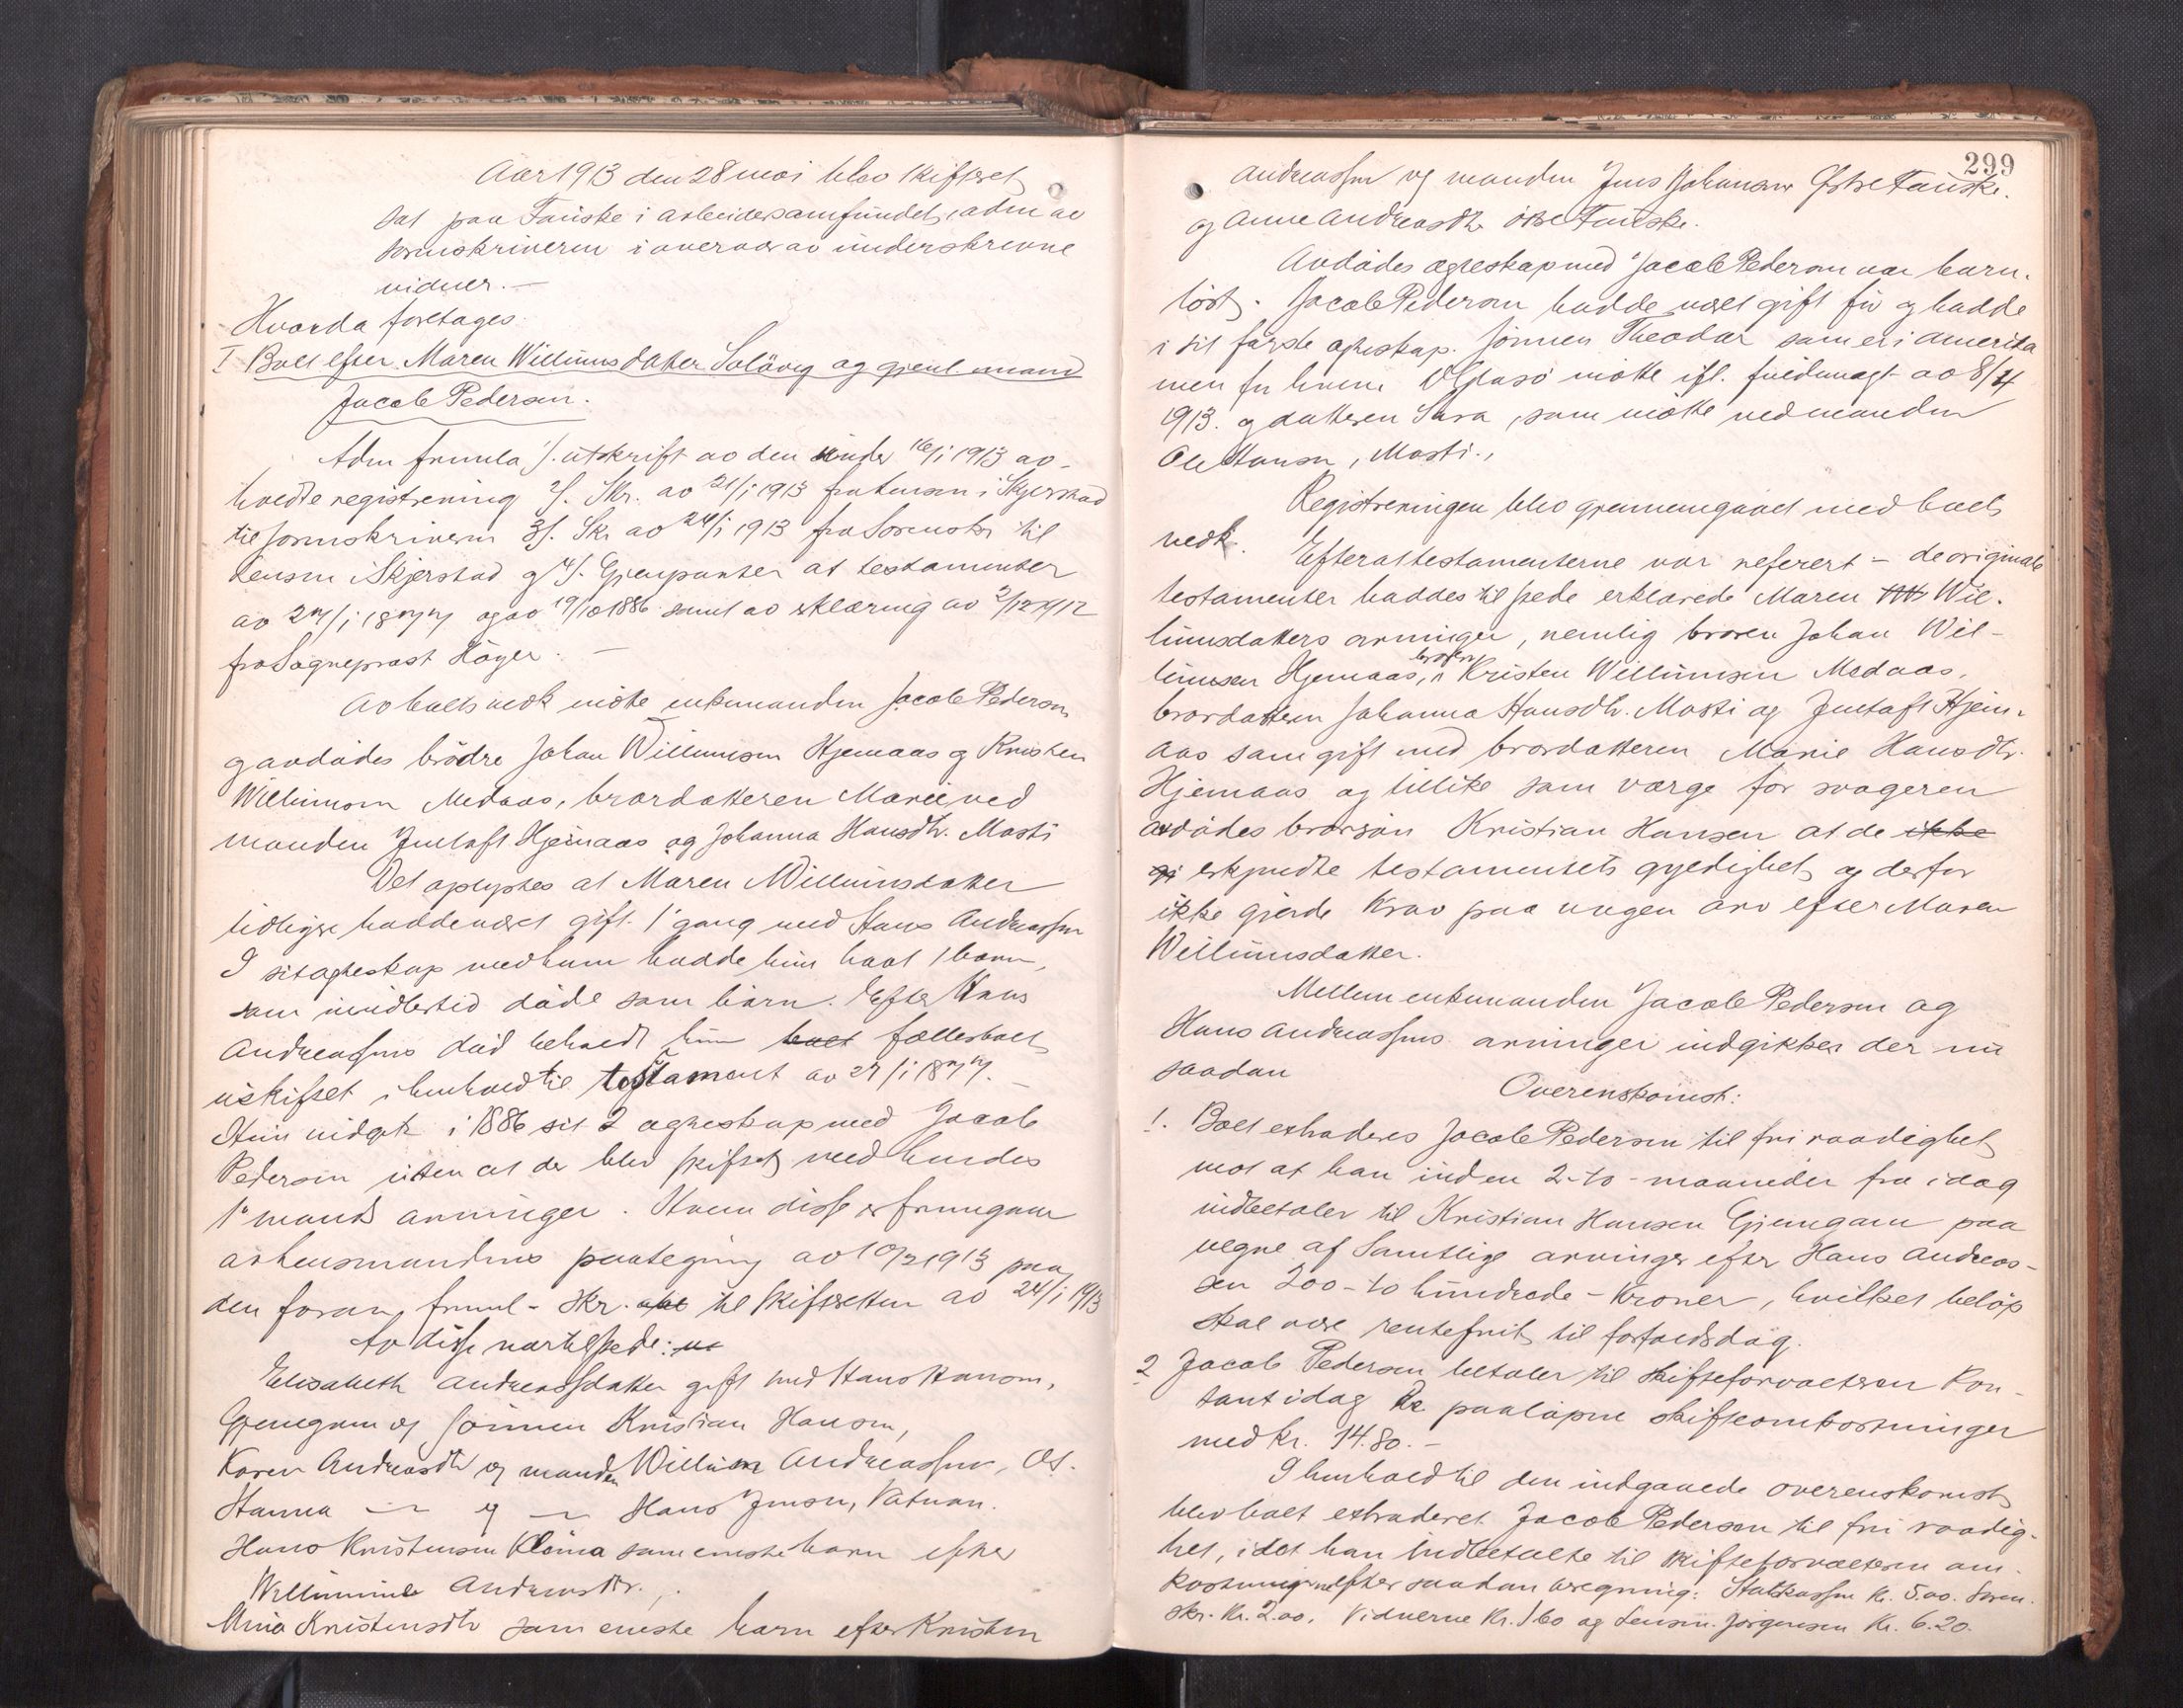 Aar 1913 den 28 mai blev skifteret
sat paa Fauske i arbeidersamfundet, adm av
sorenskriveren i overvær av underskrevne
vidner. —
Hvorda foretages
I Boet efter Maren Willumsdatter Solövig og gjenl. mand
Jacob Pedersen.
Adm fremla 1/. utskrift av den under 16/1 1913 av-
holdte registrering 2/. Skr. av 21/1 1913 fra Lensm i Skjerstad
til sorenskriveren 3/. Skr av 24/1 1913 fra Sorenskr til
Lensm i Skjerstad og 4/. Gjenparter at testamenter
av 27/1 1877 og av 19/10 1886 samt av erklæring av 2/12 1912
fra Sogneprest Höyer. —
Av boets vedk mötte enkemanden Jacob Pedersen
og avdödes brödre Johan Willumsen Hjemaas og Kristen
Willumsen Medaas, brordatteren Marie, ved
manden Justaft Hjemaas og Johanna Hansdtr. Mosti
Det oplystes at Maren Willumsdatter
tidligere hadde været gift. 1' gang med Hans Andreassen
I sit ægteskap med ham hadde hun hat 1 barn,
som imidlertid döde som barn. Efter Hans
Andreassens död beholdt hun boet fællesboet
uskiftet i henhold til testament av 27/1 1877. —
Hun indgik i 1886 sit 2 ægteskap med Jacob
Pedersen uten at der blev skiftet med hendes
1' mands arvinger. Hvem disse er fremgaar
av lensmandens paategning av 10/2 1913 paa
den foran freml. skr. til skifteretten av 24/1 1913
Av disse var tilstede:
Elisabeth Andreasdatter gift med Hans Hansen,
Gjemgam og sönnen Kristian Hansen,
Karen Andreasdtr og manden Willum Andreassen, Os.
Hanna —"— og —"— Hans Jensen, Vatnan.
Hans Kristensen Klöina som eneste barn efter
Willumine Andreasdtr.,
Mina Kristensdtr som eneste barn efter Kristen
299
Andreassen og manden Jens Johansen Östre Fauske.
og Anne Andreasdtr östre Fauske.
Avdödes ægteskap med Jacob Pedersen var barn-
löst. Jacob Pedersen hadde været gift för og hadde
i sit förste ægteskap. Sönnen Theodor som er i Amerika
men for hvem mötte ifl. fuldmagt av 8/4
1913. og datteren Sara, som mötte ved manden
Ole Hansen, Mosti.,
Registreringen blev gjennemgaaet med boets
vedk. Efter at testamenterne var referert – de originale
testamenter haddes tilstede erklærede Maren Wil-
lumsdatters arvinger, nemlig broren Johan Wil-
lumsen Hjemaas, broren Kristen Willumsen Medaas,
brordatteren Johanna Hansdtr. Mosti og Justaft Hjem-
aas som gift med brordatteren Marie Hansdtr.
Hjemaas og tillike som værge for svogeren
avdödes brorsön Kristian Hansen at de ikke
gj erkjendte testamentets gyldighet og derfor
ikke gjorde krav paa nogen arv efter Maren
Willumsdatter.
Mellem enkemanden Jacob Pedersen og
Hans Andreassens arvinger indgikkes der nu
saadan
Overenskomst:
1. Boet extraderes Jacob Pedersen til fri raadighet
mot at han inden 2-to-maaneder fra idag
indbetaler til Kristian Hansen Gjemgam paa
vegne af samtlige arvinger efter Hans Andreas-
sen 200-to hundrede-kroner, hvilket belöp
skal være rentefrit til forfaldsdag.
2 Jacob Pedersen betaler til skifteforvalteren kon-
tant idag de paalöpne skifteomkostninger
med kr. 14.80. —
I henhold til den indgaaede overenskomst
blev boet extraderet Jacob Pedersen til fri raadig-
het, idet han indbetalte til skifteforvalteren om-
kostningerne efter saadan beregning: Statskassen kr. 5.00. Soren-
skr. kr. 2.00. Vidnerne kr. 1.60 og Lensm. Jörgensen kr. 6.20.